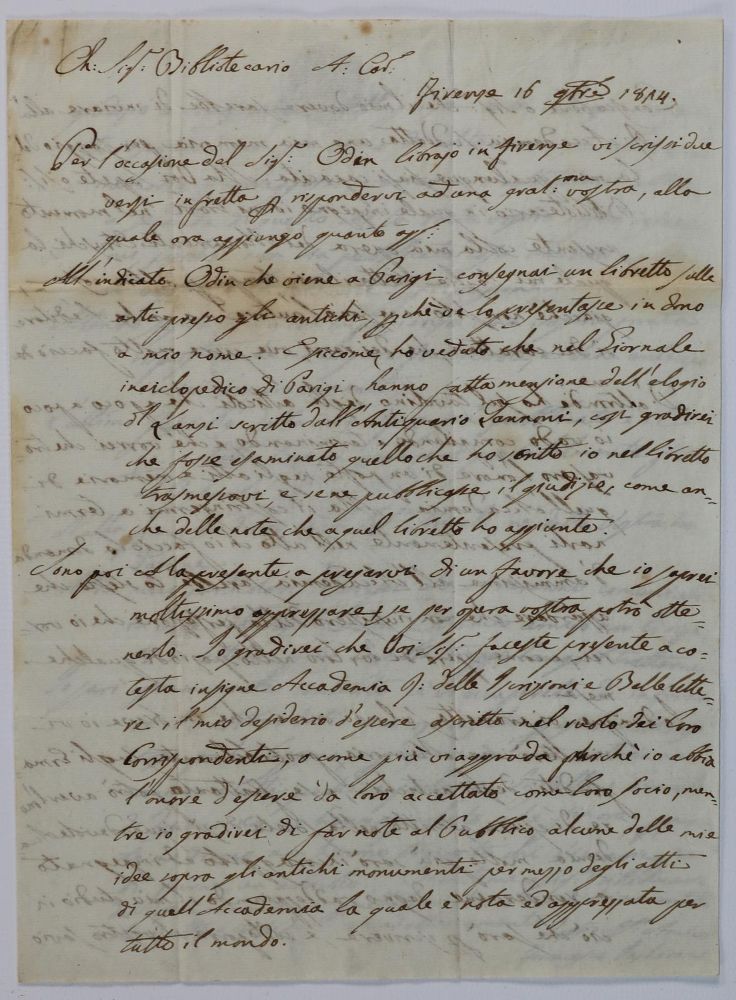 Ch: Sig.r Bibliotecario A: Car:
Firenze 16 9bre 1814.
Per l'occasione del Sig.r Odin librajo in Firenze vi scrissi due
versi in fretta rispondervi ad una grat:ma vostra, alla
quale ora aggiungo quanto app:
All'indicato Odin che viene a Parigi consegnai un libretto sulle
arti presso gli antichi, che ve lo presentasse in dono
a mio nome. E siccome ho veduto che nel Giornale
inciclopedico di Parigi hanno fatta menzione dell'elogio
di Lanzi scritto dall'Antiquario Zannoni, così gradirei
che fosse esaminato quello che ho scritto io nel libretto
trasmessovi e se ne pubblicasse il giudizio, come an-
che delle note che a quel libretto ho aggiunte.
Sono poi colla presente a pregarvi di un favore che io saprei
moltissimo apprezzare, se per opera vostra potrò otte-
nerlo. Io gradirei che Voi Sig.r faceste presente a co-
testa insigne Accademia delle Iscrizioni e Belle lette-
re il mio desiderio d'essere ascritto nel ruolo dei loro
Corrispondenti, o come più vi aggrada purchè io abbia
l'onore d'essere da loro accettato come loro socio, men-
tre io gradirei di far note al Pubblico alcune delle mie
idee sopra gli antichi monumenti per mezzo degli atti
di quell'Accademia la quale è nota ed apprezzata per
tutto il mondo.